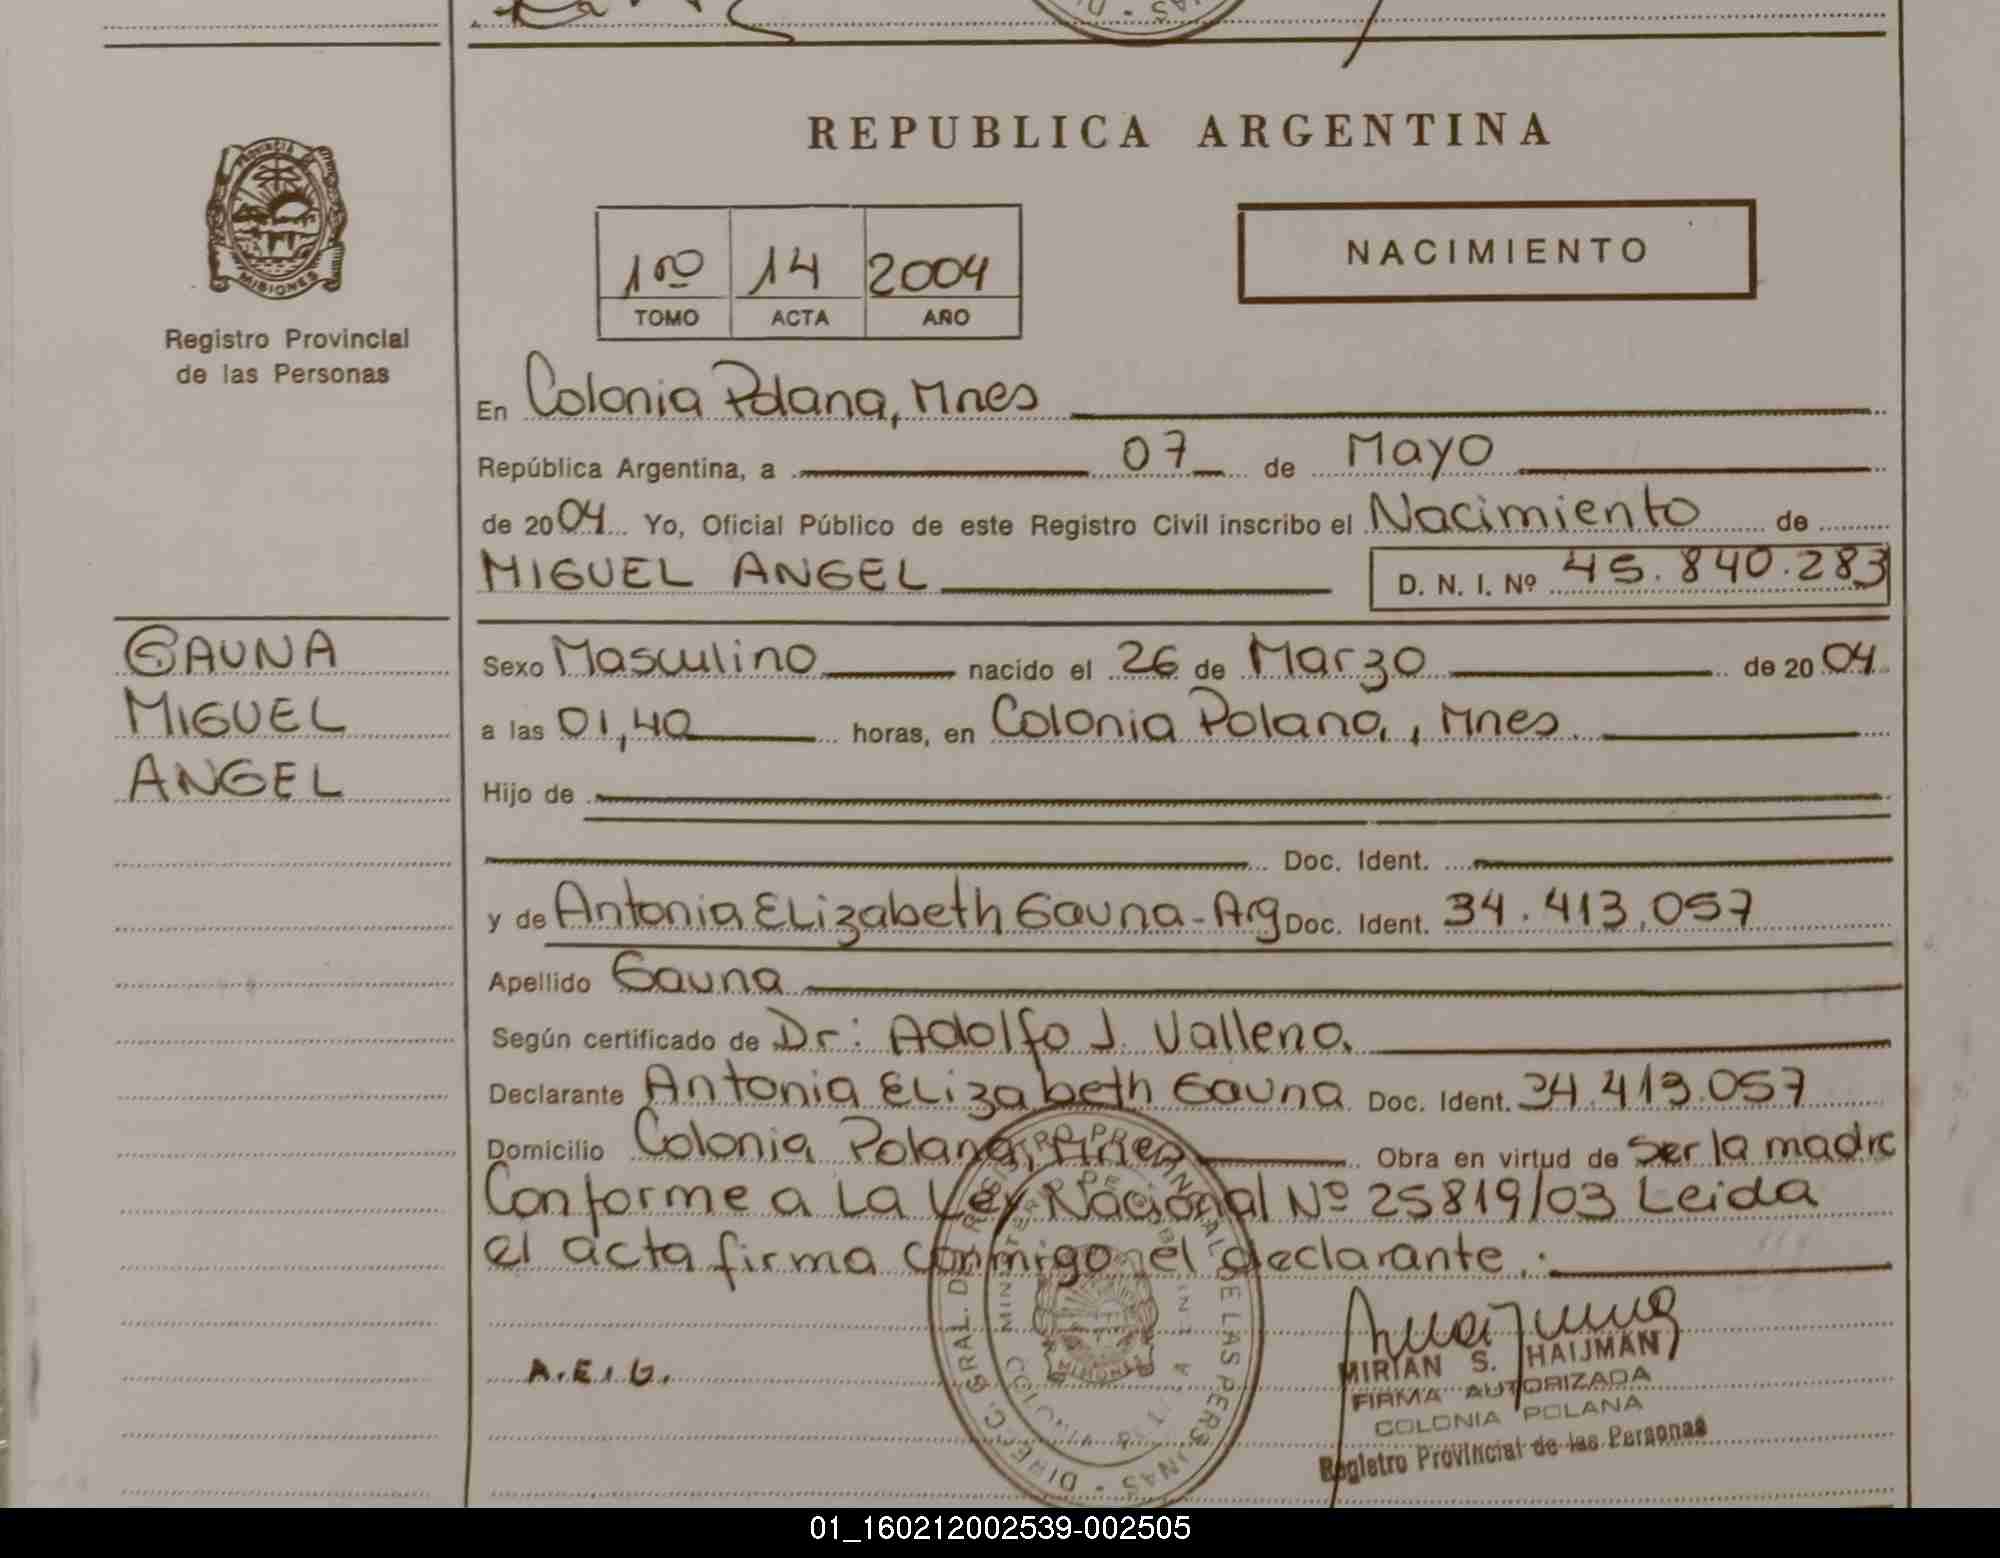 REPUBLICA ARGENTINA
PROVINCIA
MISIONES
Registro Provincial
de las Personas
1ro 14 2004
TOMO ACTA AÑO
NACIMIENTO
En Colonia Polana, Mnes
República Argentina, a 07 de Mayo
de 2004 Yo, Oficial Público de este Registro Civil inscribo el Nacimiento de
MIGUEL ANGEL D. N. I. Nº 45.840.283
GAUNA
MIGUEL
ANGEL
Sexo Masculino nacido el 26 de Marzo de 2004
a las 01,40 horas, en Colonia Polana, Mnes
Hijo de
Doc. Ident.
y de Antonia Elizabeth Gauna - Arg Doc. Ident. 34.413.057
Apellido Gauna
Según certificado de Dr: Adolfo J. Valleno.
Declarante Antonia Elizabeth Gauna Doc. Ident. 34.413.057
Domicilio Colonia Polana, Mnes Obra en virtud de ser la madre
Conforme a La Ley Nacional Nº 25819/03 Leida
el acta firma conmigo el declarante.
A.E.G.
MIRIAN S. HAIJMAN
FIRMA AUTORIZADA
COLONIA POLANA
Registro Provincial de las Personas
01_160212002539-002505